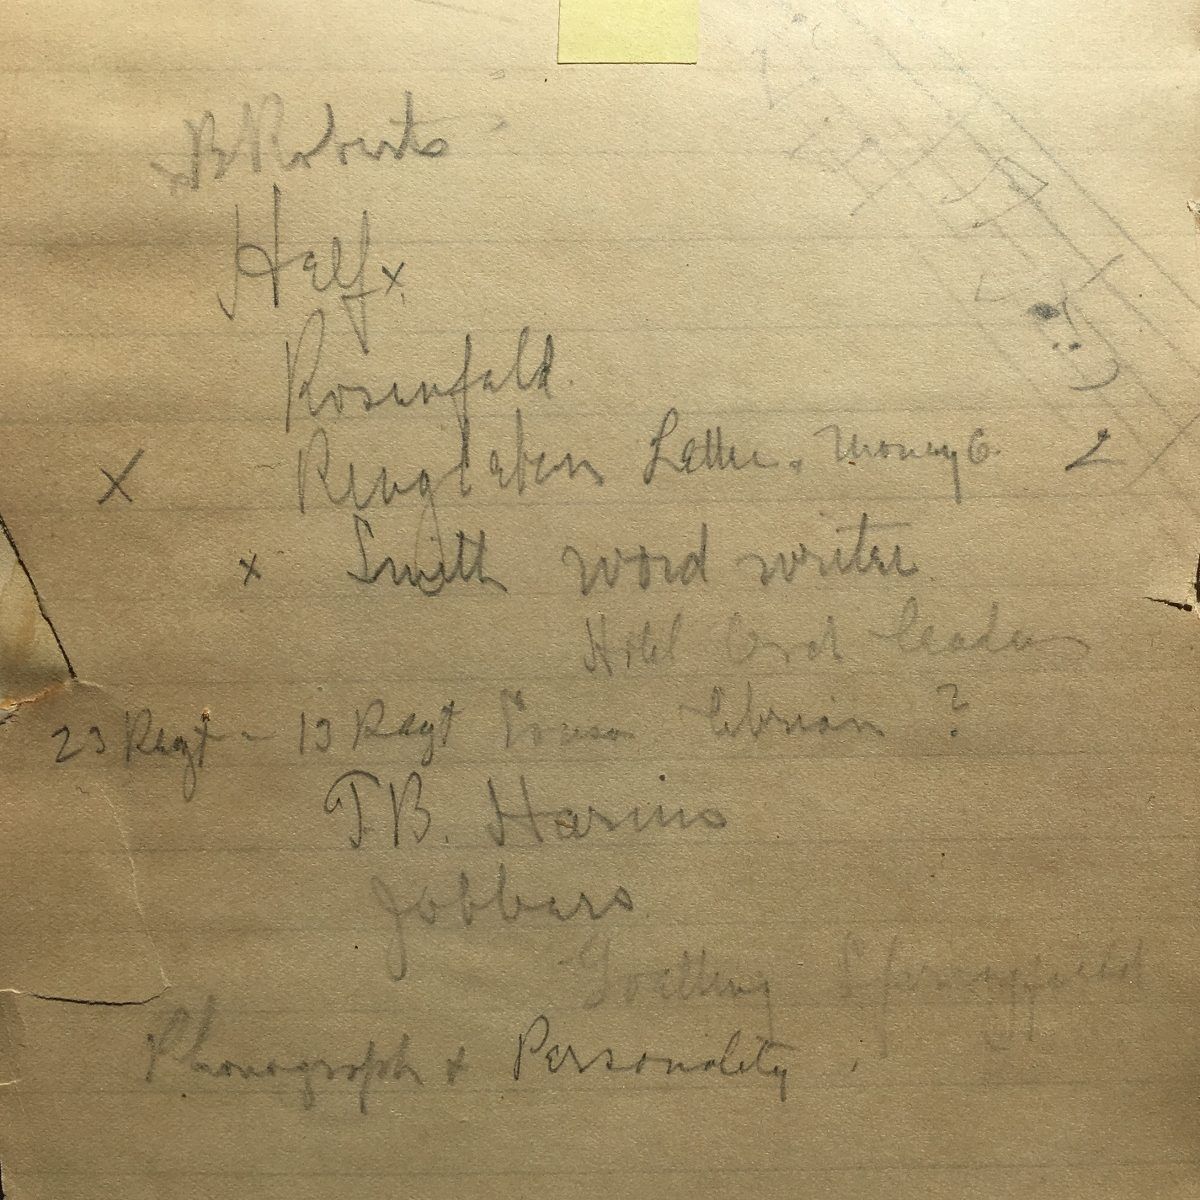 x B Roberts
Half x
Rosenfeld.
x Ringleben Letter. Money 6. 2
x Smith word writer
Hotel Orch Leaders
23 Regt - 13 Regt Sousa ?
T.B. Harms
Jobbers
Springfield
Phonograph & Personality.